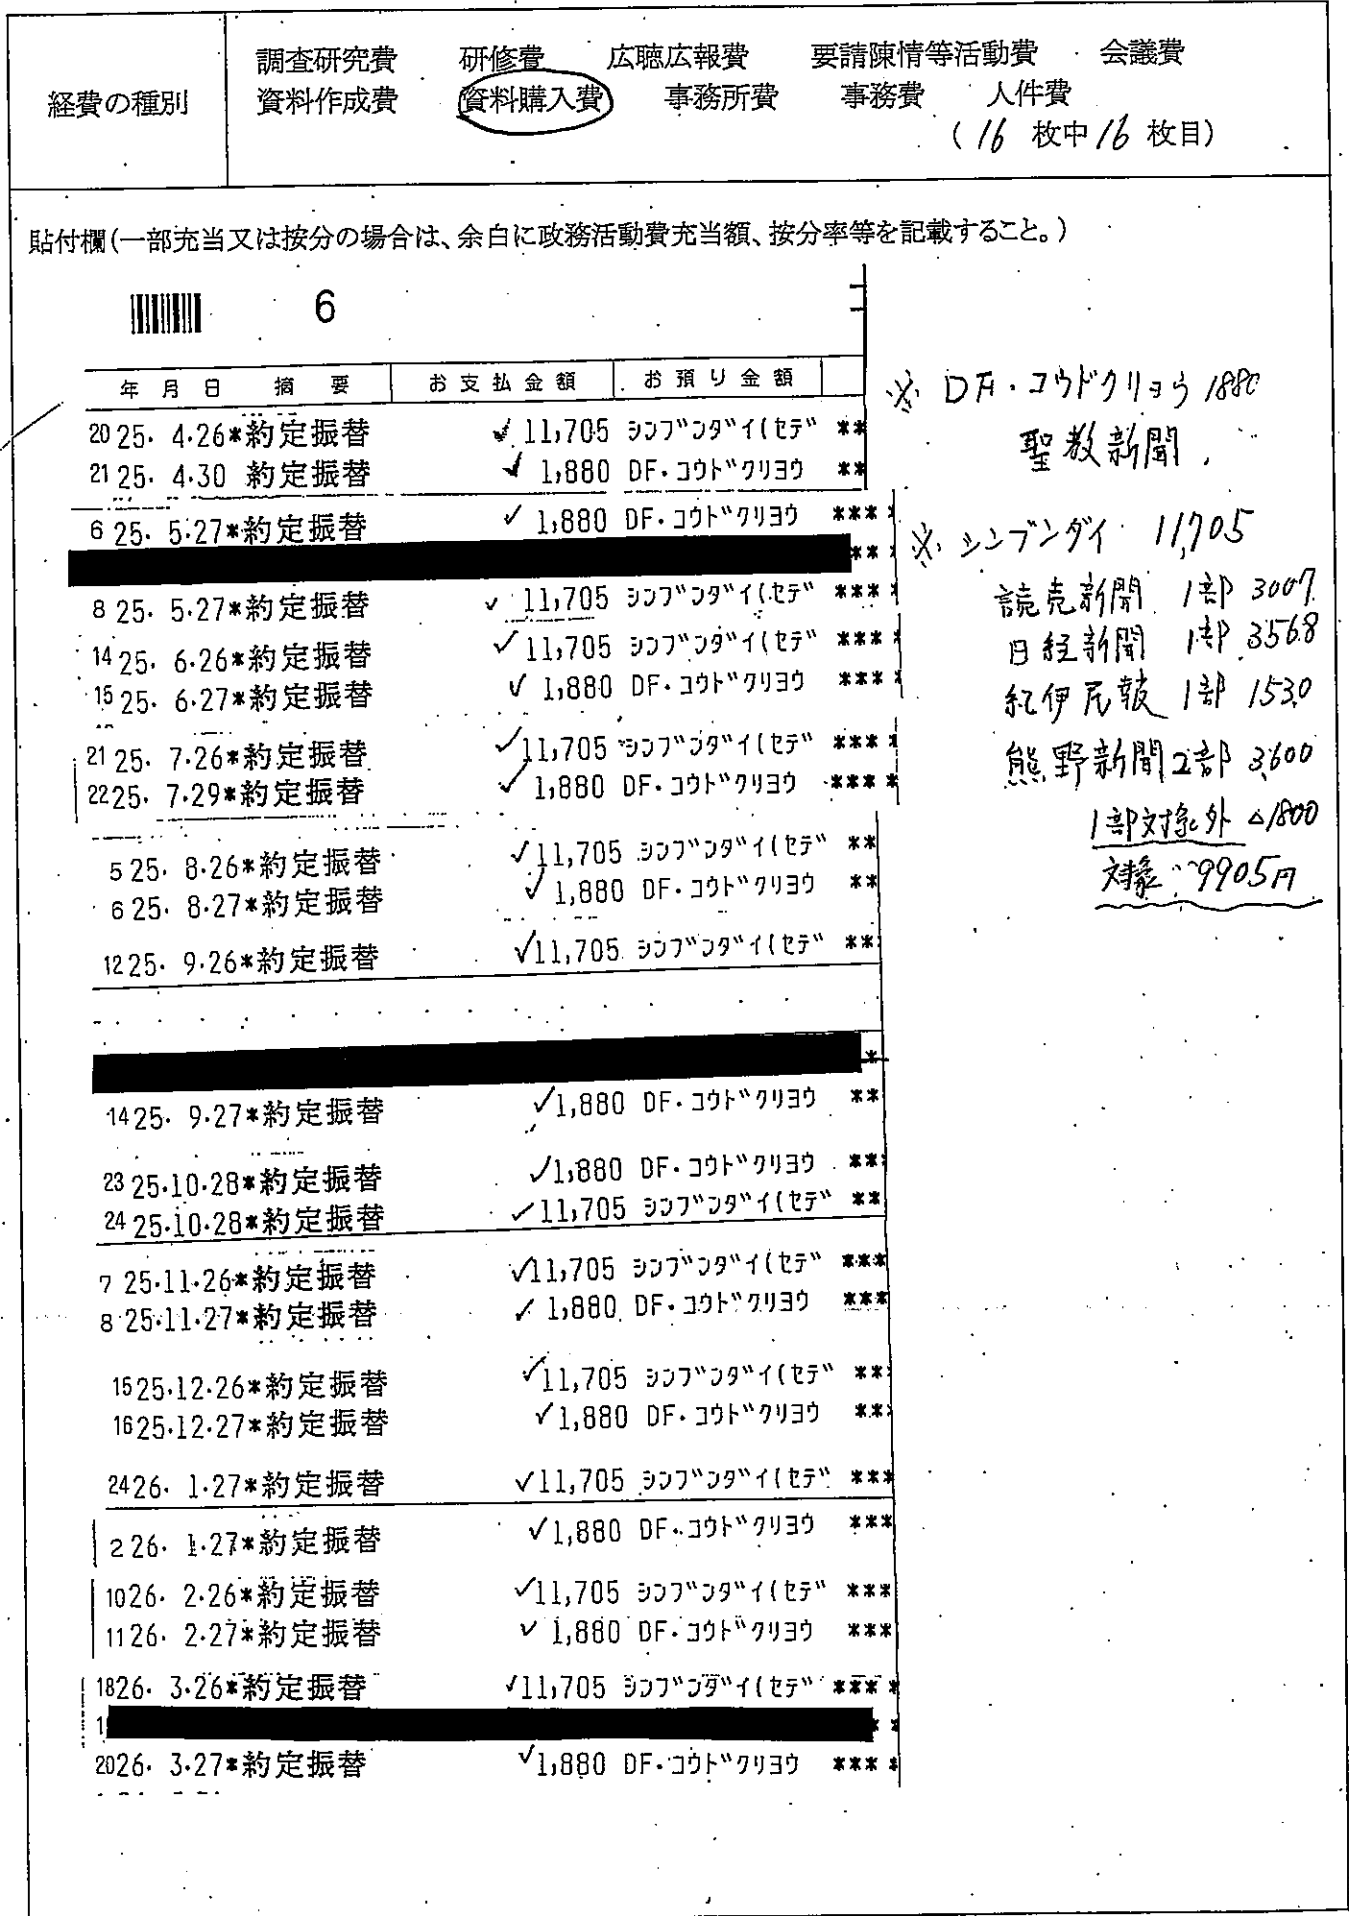 調査研究費 研修費 広聴広報費 要請陳情等活動費 会議費
経費の種別 資料作成費 資料購入費 事務所費 事務費 人件費
(16枚中16枚目)
貼付欄(一部充当又は按分の場合は、余白に政務活動費充当額、按分率等を記載すること。)
6
年月日 摘要 お支払金額 お預り金額
20 25. 4.26*約定振替 11,705 シンブンダイ(セデ **
21 25. 4.30 約定振替 1,880 DF.コウドクリヨウ **
6 25. 5.27*約定振替 1,880 DF.コウドクリヨウ ***
8 25. 5.27*約定振替 11,705 シンブンダイ(セデ ***
14 25. 6.26*約定振替 11,705 シンブンダイ(セデ ***
15 25. 6.27*約定振替 1,880 DF.コウドクリヨウ ***
21 25. 7.26*約定振替 11,705 シンブンダイ(セデ ***
22 25. 7.29*約定振替 1,880 DF.コウドクリヨウ ***
5 25. 8.26*約定振替 11,705 シンブンダイ(セデ **
6 25. 8.27*約定振替 1,880 DF.コウドクリヨウ **
12 25. 9.26*約定振替 11,705 シンブンダイ(セデ **
14 25. 9.27*約定振替 1,880 DF.コウドクリヨウ **
23 25.10.28*約定振替 1,880 DF.コウドクリヨウ **
24 25.10.28*約定振替 11,705 シンブンダイ(セデ **
7 25.11.26*約定振替 11,705 シンブンダイ(セデ ***
8 25.11.27*約定振替 1,880 DF.コウドクリヨウ ***
15 25.12.26*約定振替 11,705 シンブンダイ(セデ **
16 25.12.27*約定振替 1,880 DF.コウドクリヨウ **
24 26. 1.27*約定振替 11,705 シンブンダイ(セデ ***
2 26. 1.27*約定振替 1,880 DF.コウドクリヨウ ***
10 26. 2.26*約定振替 11,705 シンブンダイ(セデ ***
11 26. 2.27*約定振替 1,880 DF.コウドクリヨウ ***
18 26. 3.26*約定振替 11,705 シンブンダイ(セデ ***
20 26. 3.27*約定振替 1,880 DF.コウドクリヨウ ***
※ DF.コウドクリョウ 1880
聖教新聞
※ シンブンダイ 11,705
読売新聞 1部 3007
日経新聞 1部 3568
紀伊民報 1部 1530
熊野新聞 2部 3,600
1部対象外 △1800
対象 9905円